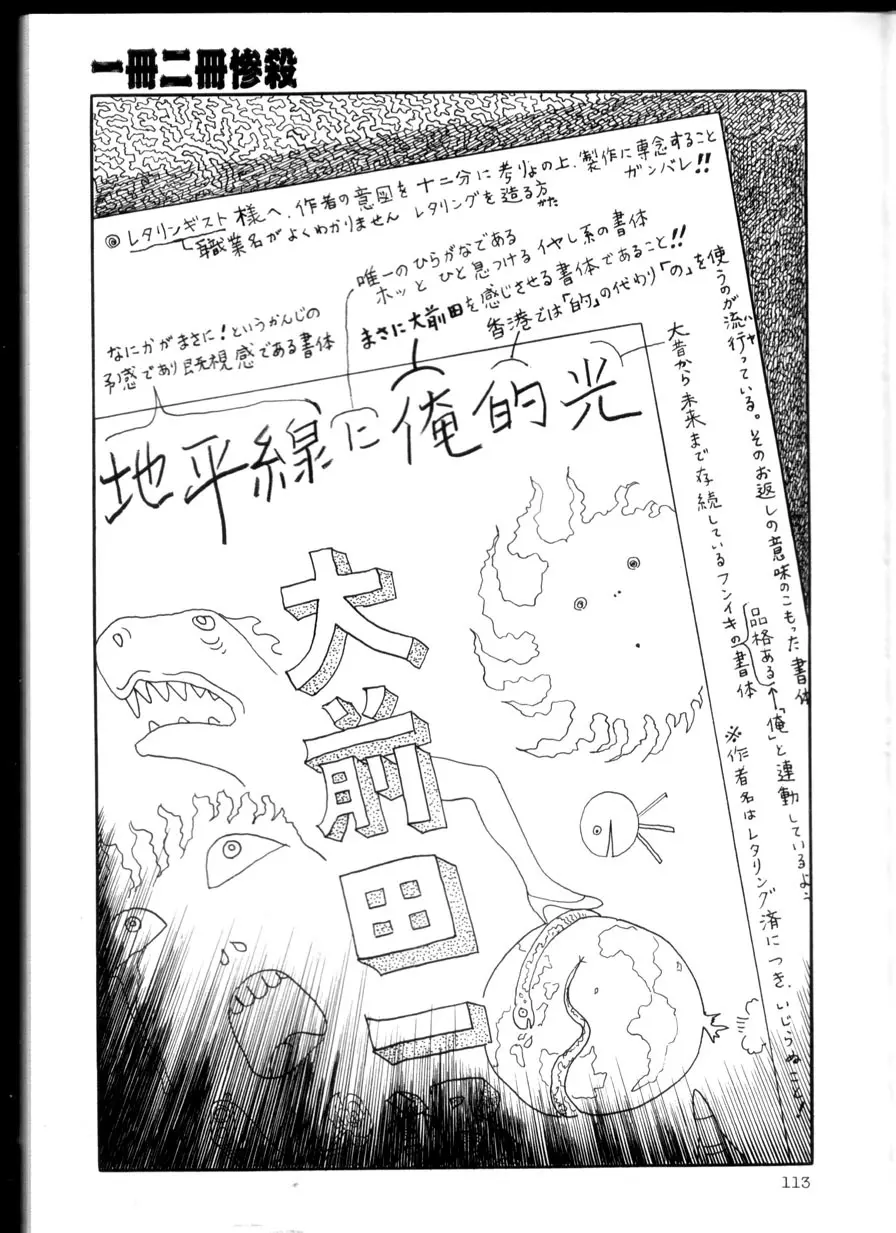 一冊二冊惨殺
◎レタリンギスト様へ、作者の意図を十二分に考りょの上、製作に専念すること
ガンバレ!!
職業名がよくわかりません レタリングを造る方
がた
唯一のひらがなである
ホッとひと息つけるイヤし系の書体
まさに大前田を感じさせる書体であること!!
香港では「的」の代わり「の」を使
うのが流行っている。そのお返しの意味のこもった書体
ハヤ
品格ある←「俺」と連動しているよ
なにかがまさに!というかんじの
予感であり既視感である書体
大昔から未来まで存続しているフンイキの書体
地平線に俺的光
大前田一
※作者名はレタリング済につき、いじらぬこと!
113